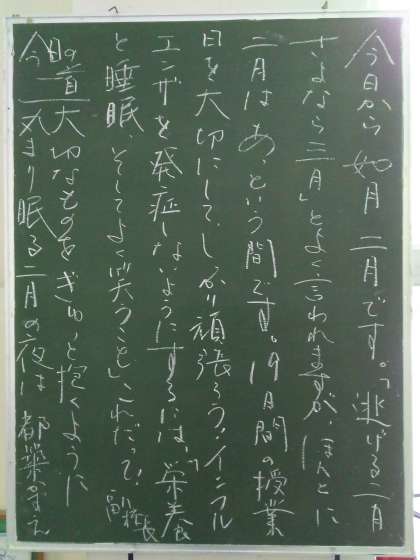 今日から如月 二月です。「逃げる二月
さよなら三月」とよく言われますが、ほんとに
二月はあっという間です。19日間の授業
日を大切にして、しっかり頑張ろう！インフル
エンザを発症しないようにするには、「栄養
と睡眠、そしてよく笑うこと」これだって。副校長
今日の一首 大切なものをぎゅっと抱くように
丸まり眠る二月の夜は